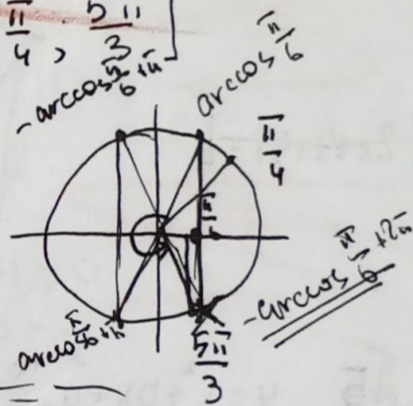 π/4 ; 5π/3]
-arccos π/6 + π
arccos π/6
π/4
π/6
-arccos π/6 + 2π
arccos π/6 + π
5π/3